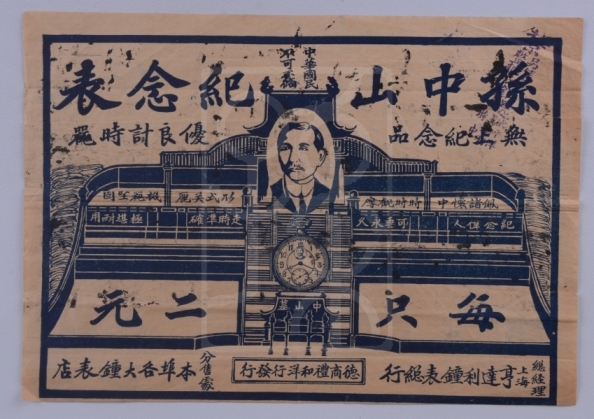 中華國民
不可不備
孫中山紀念表
無上紀念品
優良計時器
佩諸懷中 時時觀摩
形式美麗 機械堅固
紀念偉人 可垂永久
走時準確 極堪耐用
中山墓
每只二元
總經理
上海亨達利鐘表總行
德商禮和洋行發行
分售處
本埠各大鐘表店